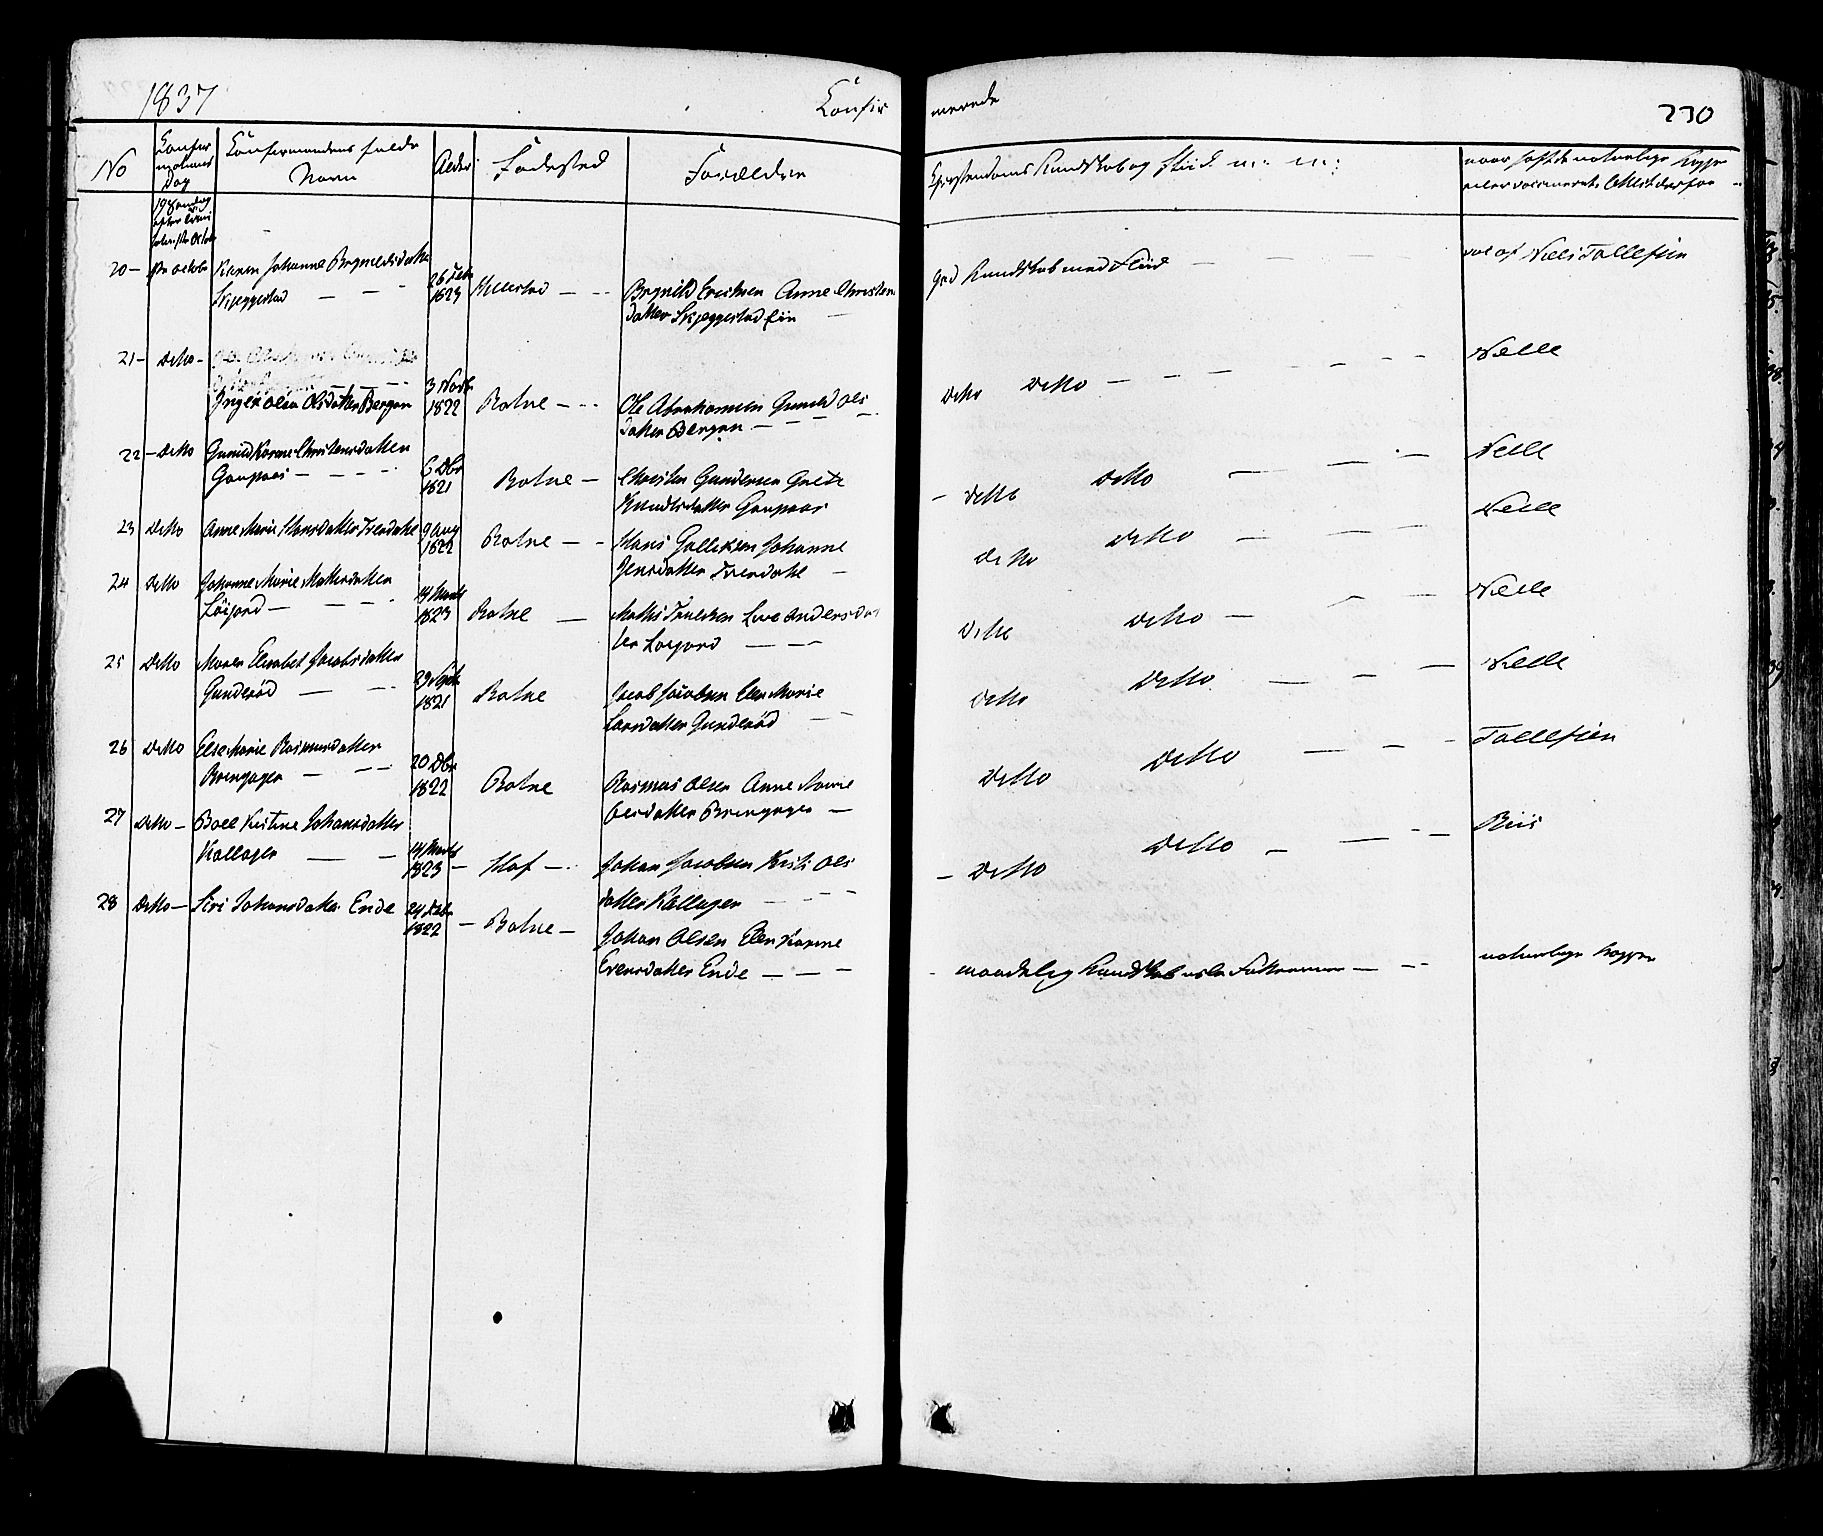 1837
Confir
merede
230
No
Confir
mations
Dag
Confirmandens fulde
Navn
Alder
Fødested
Forældre
Christendoms Kundskab og Flid m: m:
naar havt de naturlige Kopper
eller vaccineret, Attest derfor
19 Søndag
efter Trini
20 - 1ste Octobr Karen Johanne Brynildsdatter
Skjeggestad
26 Febr
1823
Hillestad
Brynild Ericksen Anne Christens
datter Skjeggestad Eier
god Kundskab med Flid
vac af Niels Tollefsen
21 - Ditto -
Inger Olia Olsdatter Bergan
3 Novbr
1822
Botne
Ole Abrahamsen Gunild Ols
datter Bergan
ditto ditto
Nelle
22 - Ditto Gunild Karine Christensdatter
Goupaas
6 Dbr
1821
Botne
Christen Gundersen Grete
Knudtsdatter Goupaas
ditto ditto
Nelle
23 Ditto Anne Marie Hansdatter Tverdahl
9 Aug
1822
Botne
Hans Gulliksen Johanne
Jensdatter Tverdahl
ditto ditto
Nelle
24 Ditto Johanne Marie Mathisdatter
Løvjord
14 Marts
1823
Botne
Mathis Trulsen Live Andersdat
ter Løvjord
ditto ditto
Nelle
25 Ditto Maren Elisabet Jacobsdatter
Gunderød
29 Septb
1821
Botne
Jacob Jacobsen Elen Marie
Larsdatter Gunderød
ditto ditto
Nelle
26 Ditto Else Marie Rasmusdatter
Brengager
20 Dbr
1822
Botne
Rasmus Olsen Anne Marie
Olsdatter Brengager
ditto ditto
Tollefsen
27 Ditto - Boel Kistine Johansdatter
Kallager
14 Marts
1823
Hof
Johan Jacobsen Kisti Ols
datter Kallager
ditto ditto
Riis
28 Ditto - Siri Johansdatter Ende
24 Febr
1822
Botne
Johan Olsen Elen Karine
Evensdatter Ende
maadelig Kundskab
naturlige Kopper